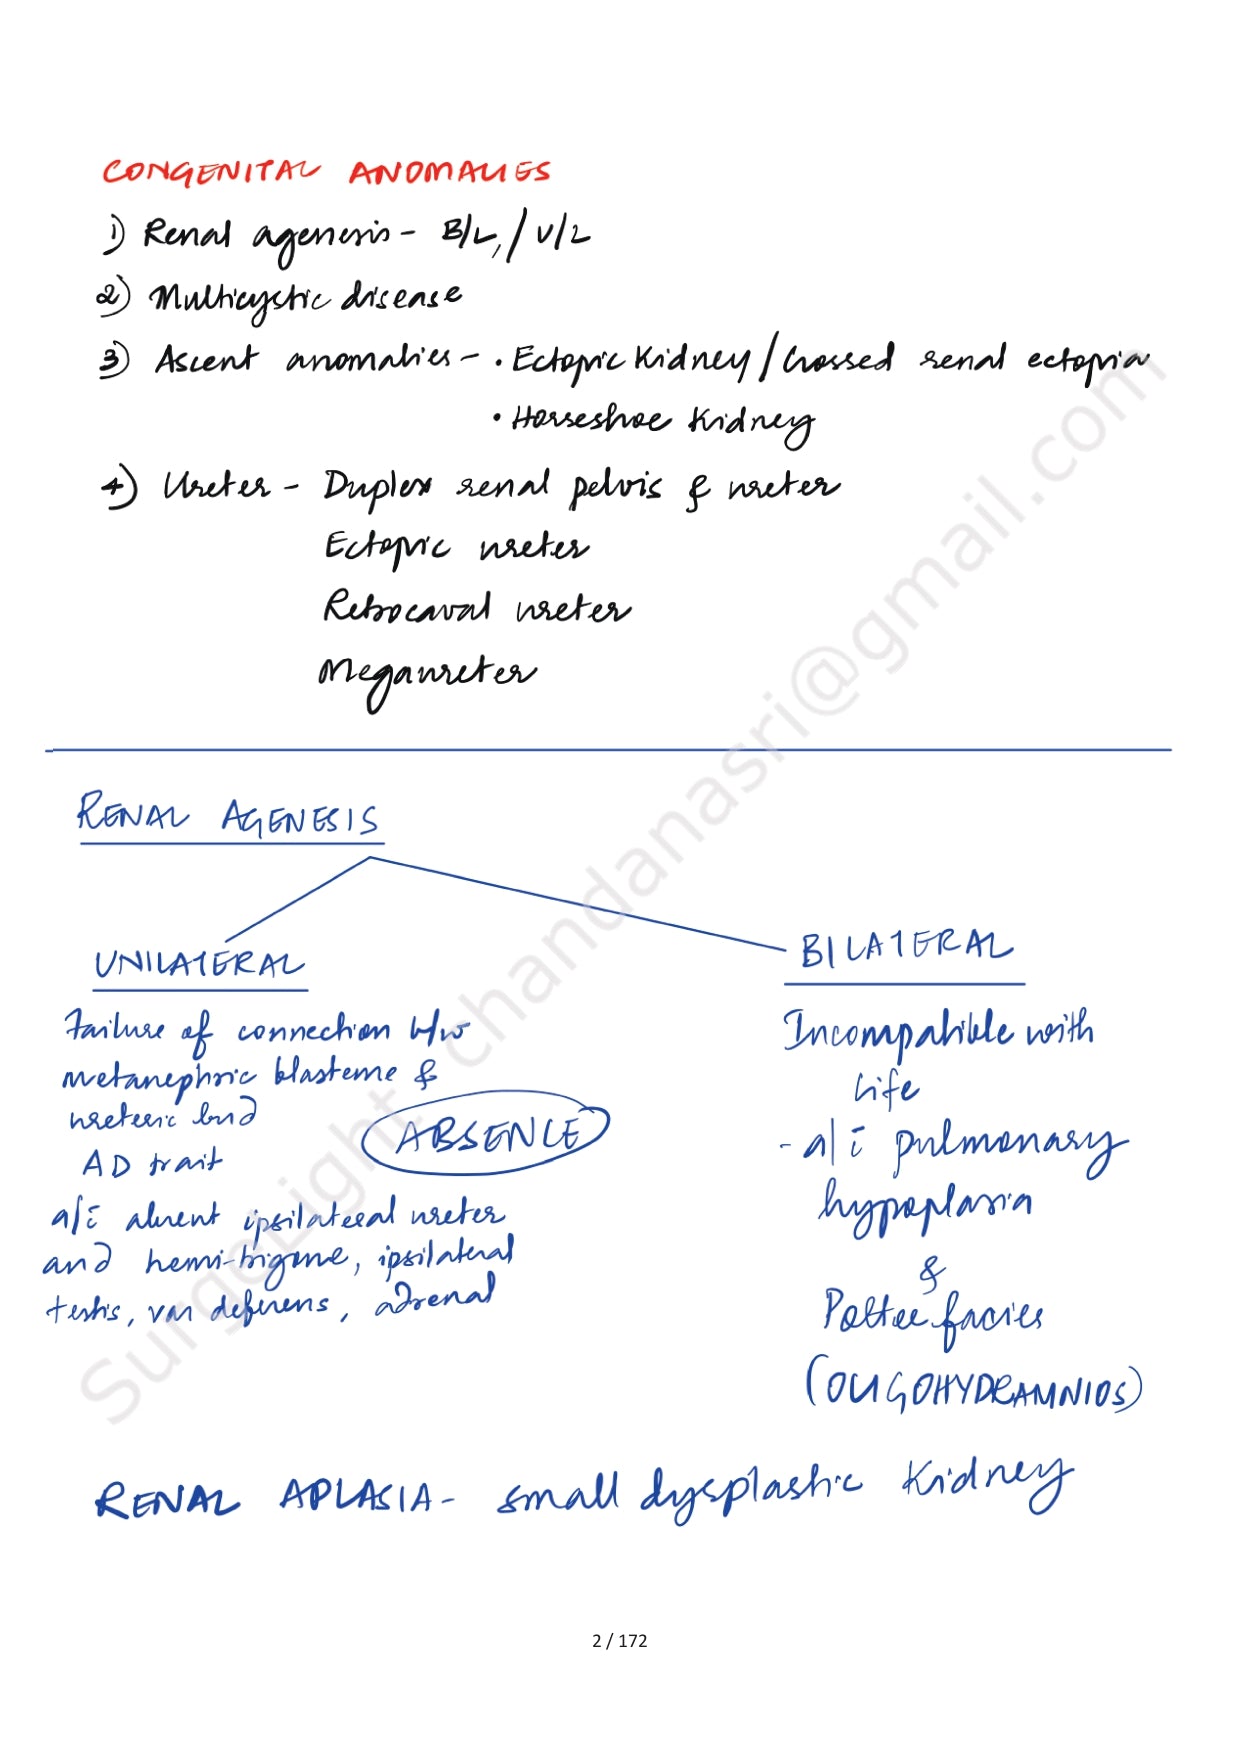 CONGENITAL ANOMALIES
1) Renal agenesis - B/L, / U/L
2) Multicystic disease
3) Ascent anomalies - • Ectopic Kidney / Crossed renal ectopia
• Horseshoe Kidney
4) Ureter - Duplex renal pelvis & ureter
Ectopic ureter
Retrocaval ureter
Megaureter
RENAL AGENESIS
UNILATERAL
Failure of connection b/w
metanephric blasteme &
ureteric bud
AD trait
ABSENCE
a/c absent ipsilateral ureter
and hemi-trigone, ipsilateral
testis, vas deferens, adrenal
BILATERAL
Incompatible with
life
- a/c pulmonary
hypoplasia
&
Potter facies
(OLIGOHYDRAMNIOS)
RENAL APLASIA - small dysplastic Kidney
SurgeLight chandanasri@gmail.com
2 / 172